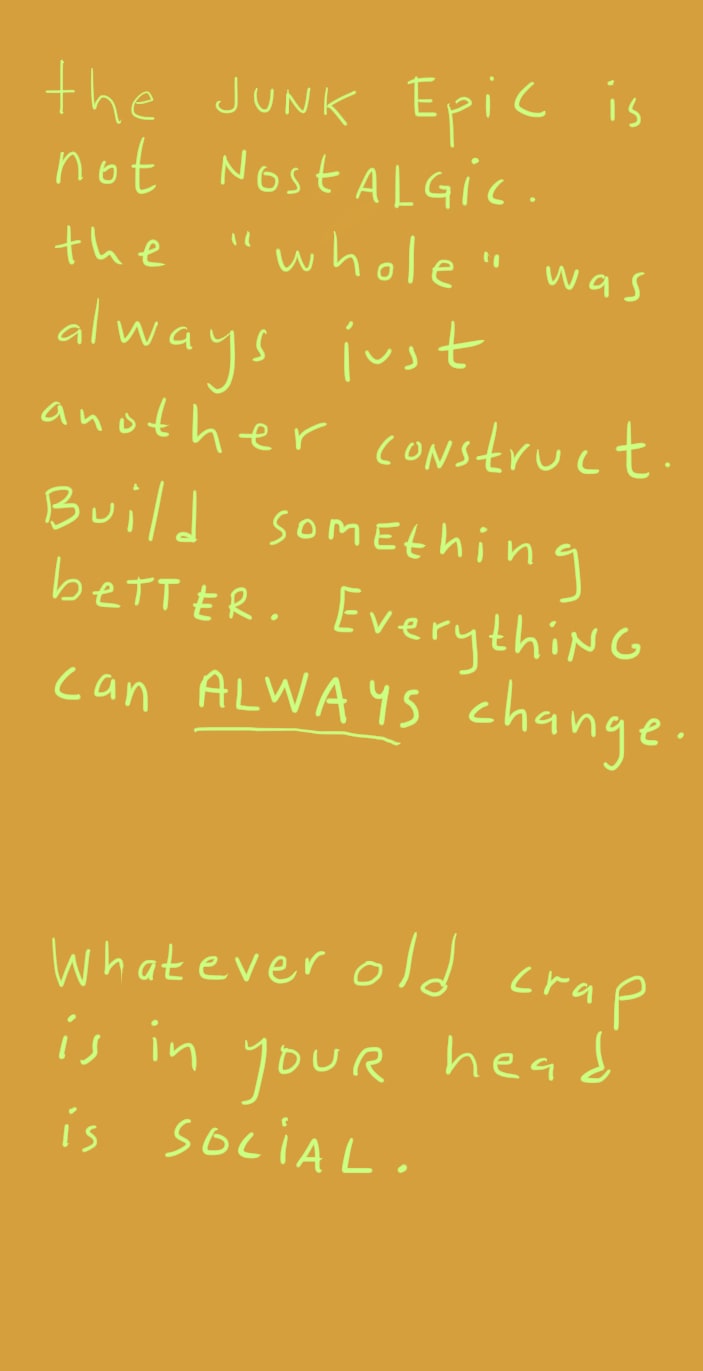 the JUNK EpiC is
not NostALGic.
the "whole" was
always just
another coNstruct.
Build somEthing
beTTER. EverythiNG
can ALWAYS change.
Whatever old crap
is in youR head
is SOCiAL.